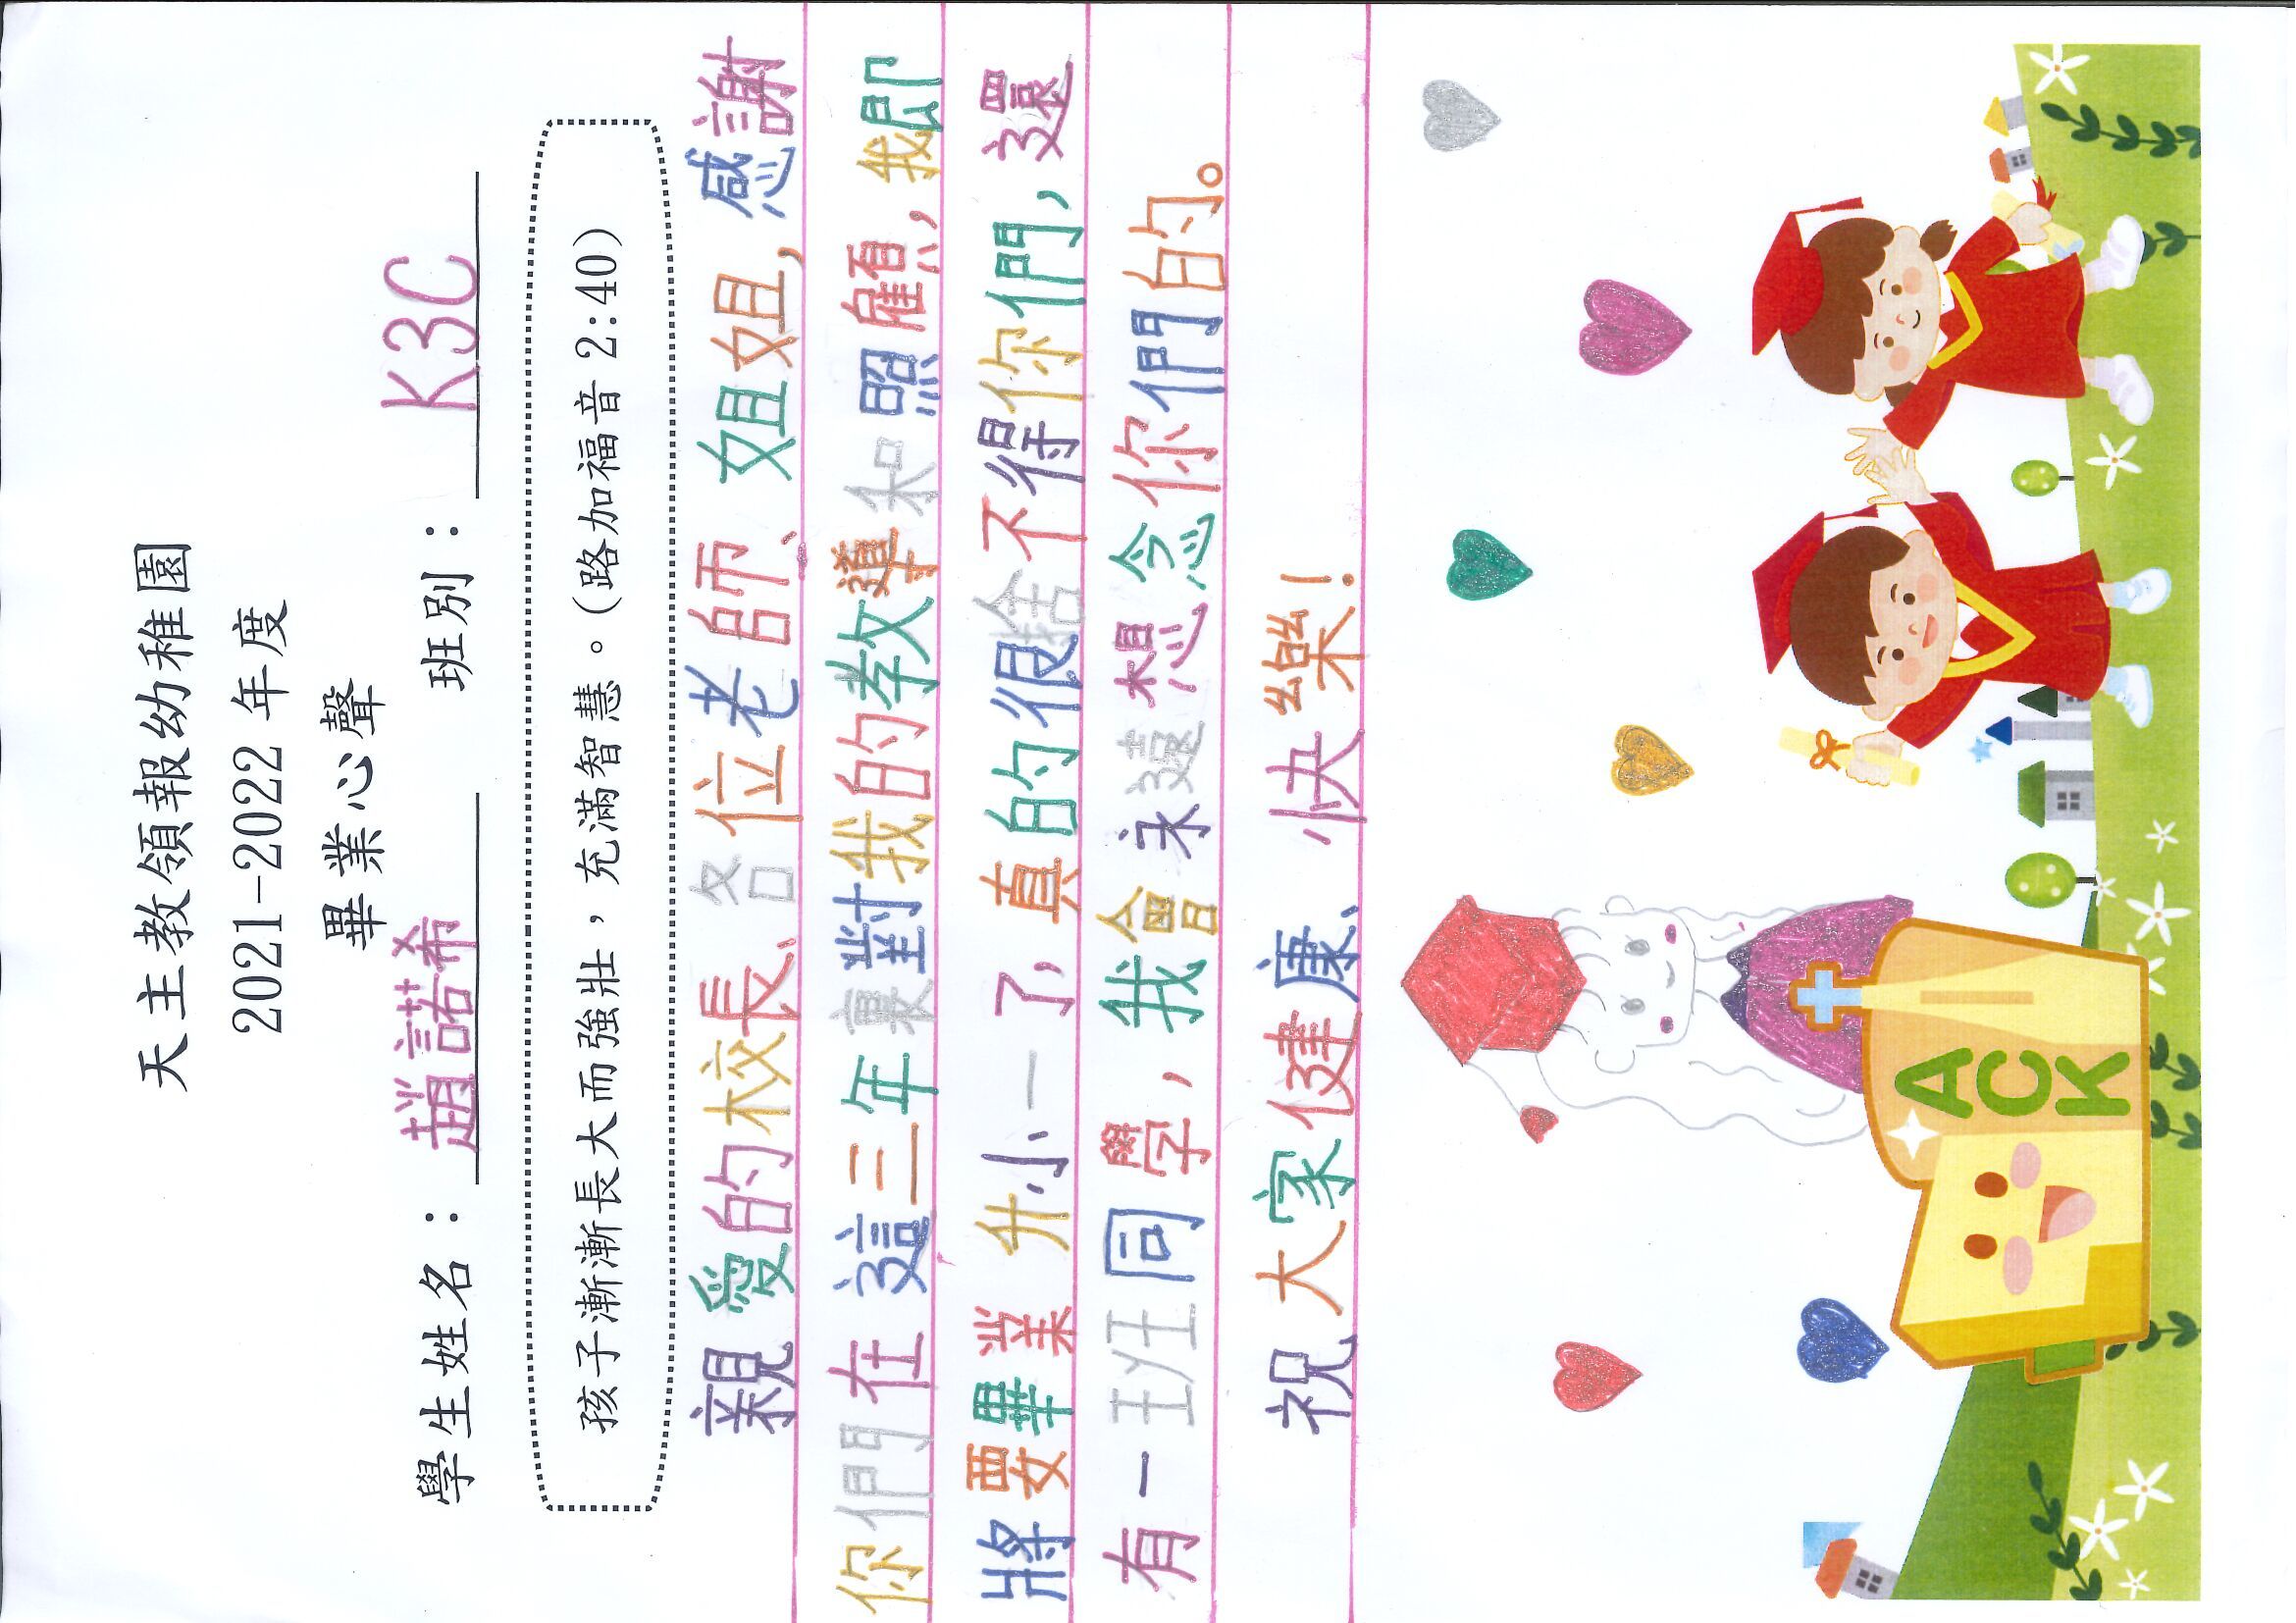 天主教領報幼稚園
2021-2022 年度
畢業心聲
學生姓名：趙諾希 班別：K3C
孩子漸漸長大而強壯，充滿智慧。(路加福音 2:40)
親愛的校長、各位老師、姐姐，感謝
你們在這三年裏對我的教導和照顧，我即
將要畢業升小一了，真的很捨不得你們，還
有一班同學，我會永遠想念你們的。
祝大家健康、快樂！
ACK